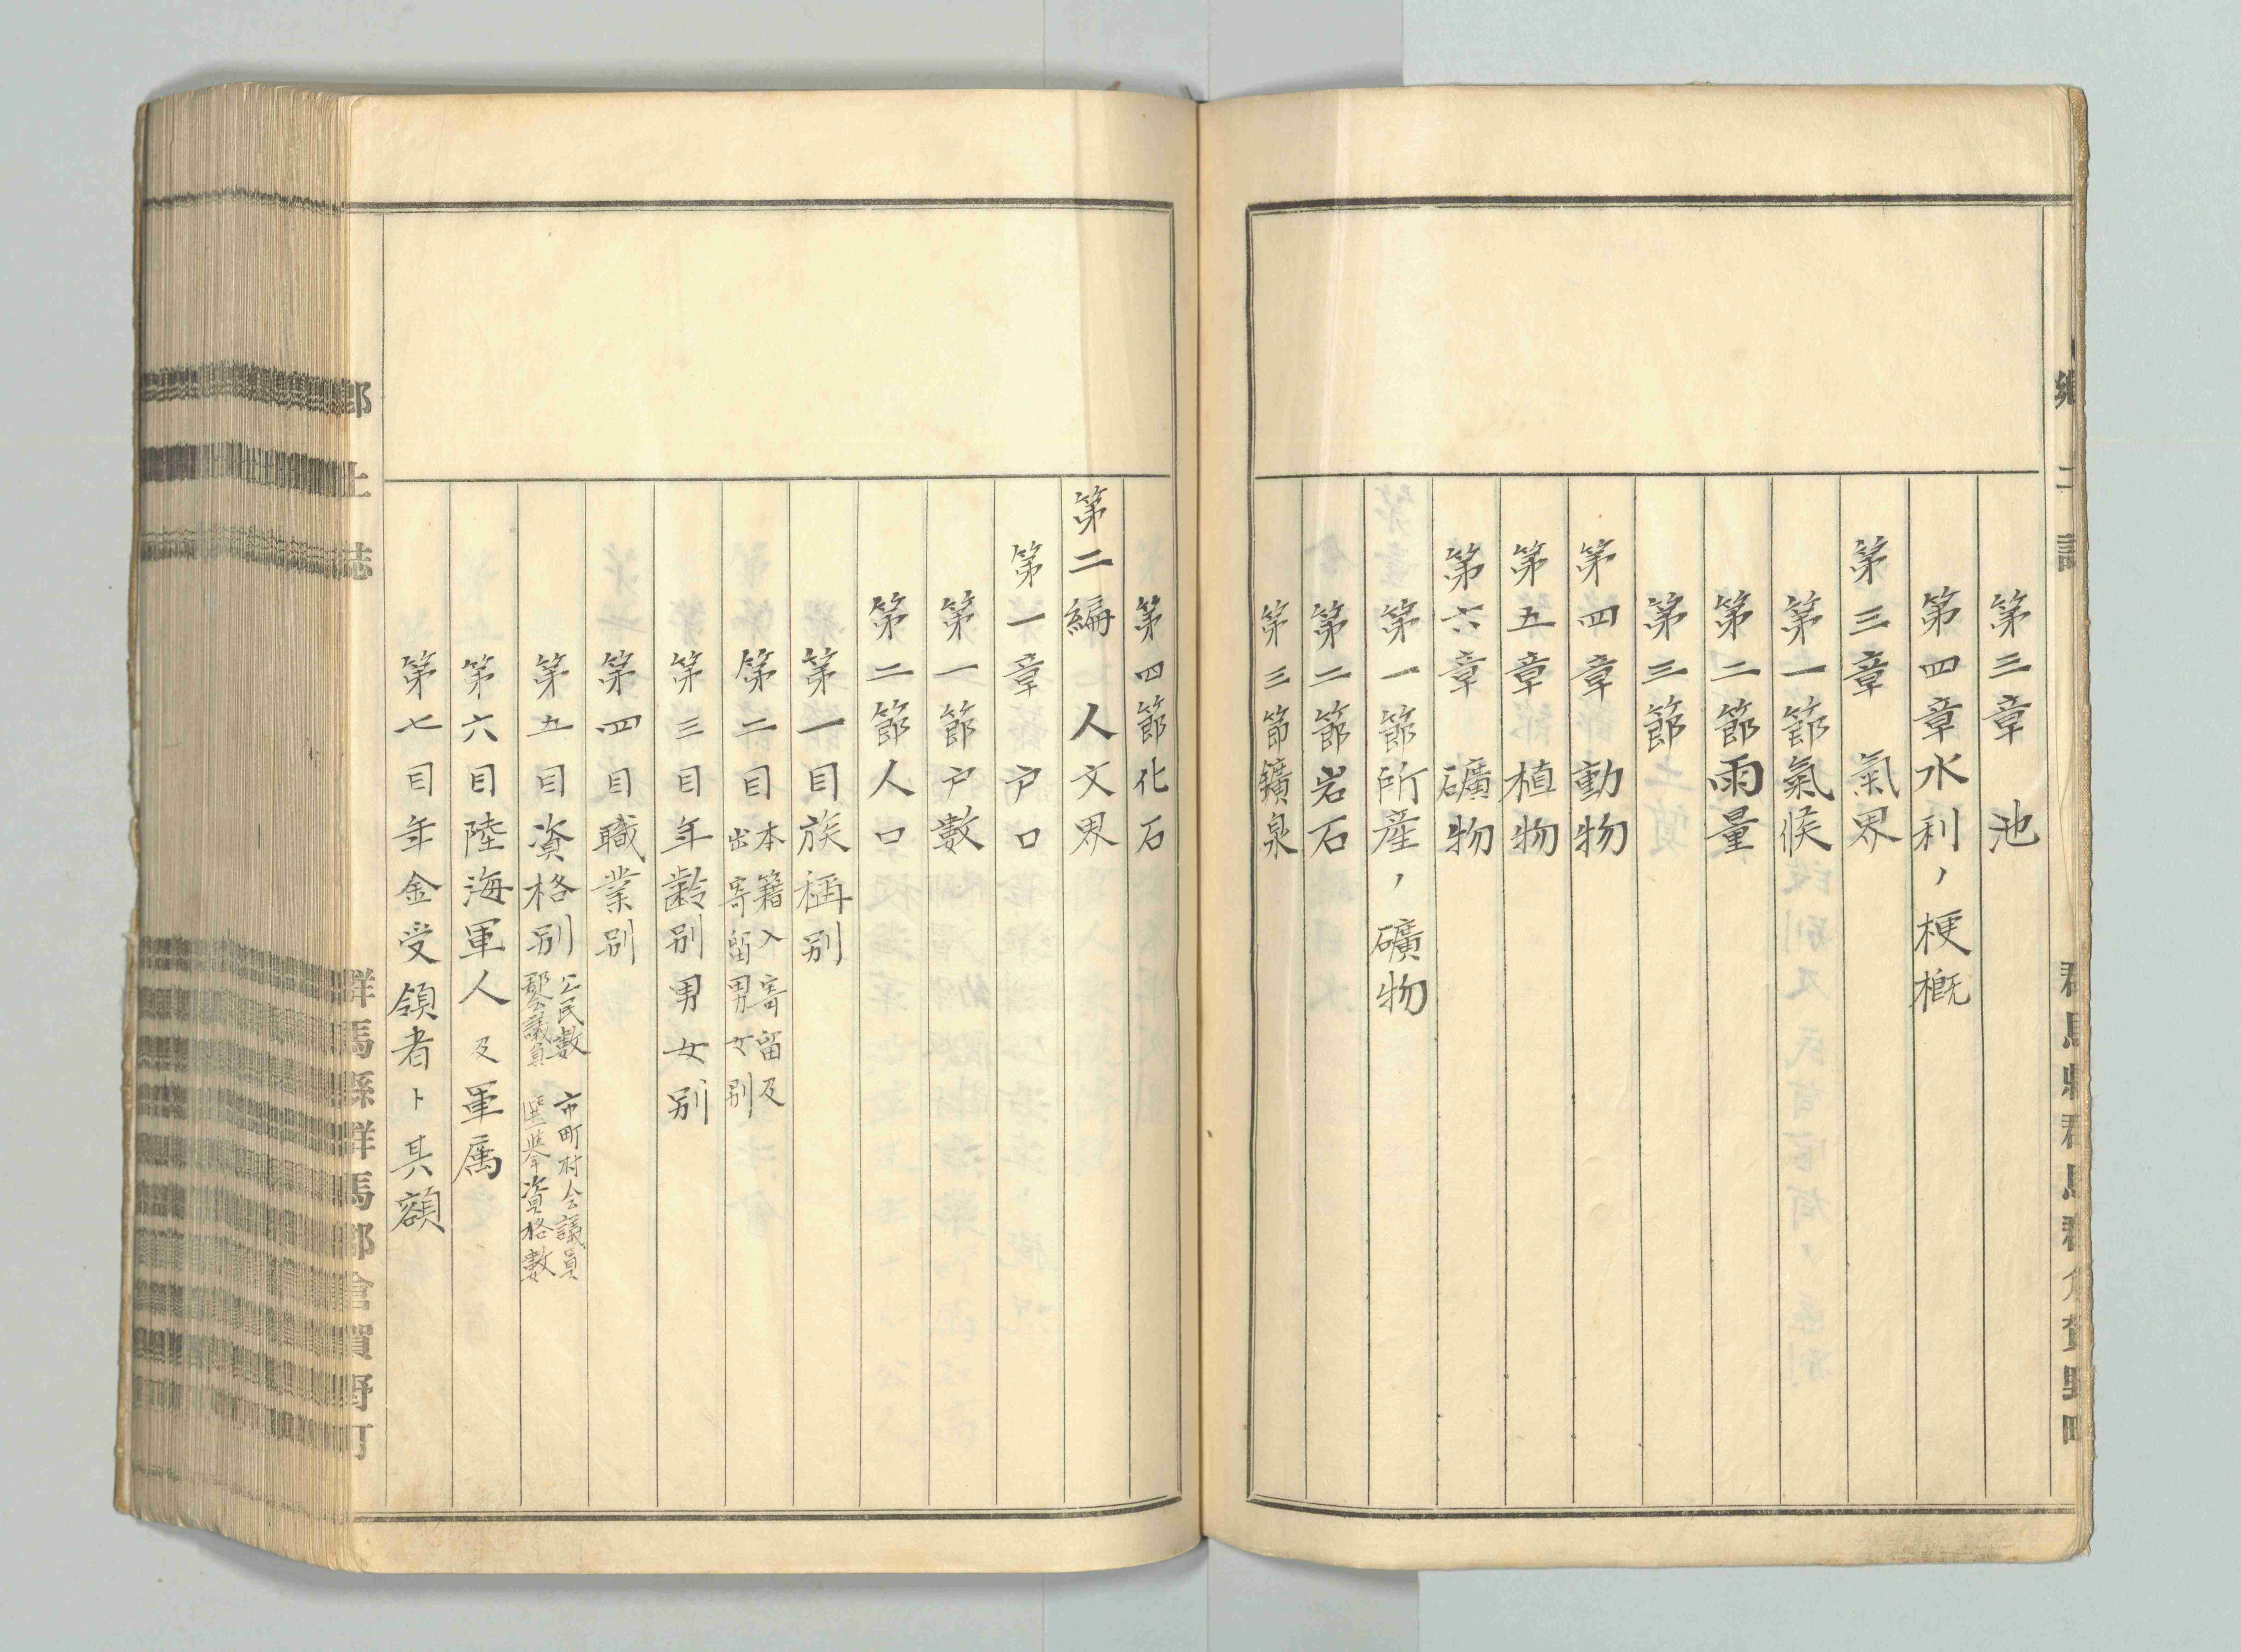 第三章　池
第四章水利ノ梗概
第三章　氣界
第一節氣候
第二節雨量
第三節
第四章　動物
第五章　植物
第六章　礦物
第一節所産ノ礦物
第二節岩石
第三節鑛泉
第四節化石
第二編　人文界
第一章　戸口
第一節戸數
第二節人口
第一目族稱別
第二目本籍入寄留及
出寄留男女別
第三目年齡別男女別
第四目職業別
第五目資格別公民數　市町村会議員
郡会議員　選挙資格數
第六目陸海軍人及軍属
第七目年金受領者ト其額
郷土誌
群馬縣群馬郡倉賀野町